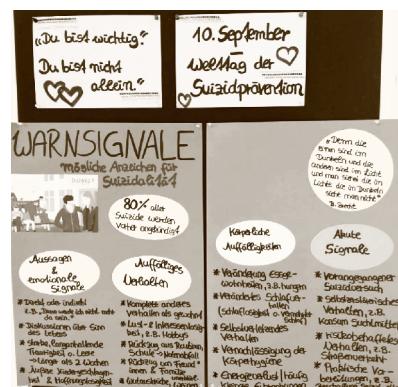 „Du bist wichtig."
Du bist nicht
allein."
10. September
–
Welttag der
Suizidprävention
WARNSIGNALE
mögliche Anzeichen für
Suizidalität
80% aller
Suizide werden
vorher angekündigt
Aussagen
&
emotionale
Signale
* Direkt oder indirekt
z.B. „Dann werde ich nicht mehr
da sein."
* Diskussionen über Sinn
des Lebens
* Starke, langanhaltende
Traurigkeit, o. Leere
→ länger als 2 Wochen
& Hoffnungslosigkeit
Auffälliges
Verhalten
* Komplett anderes
Verhalten als gewohnt
* Lust- & Interessenlosig-
keit, z.B. Hobbys
* Rückzug aus Routinen,
Schule → Notenabfall
* Rückzug von Freund
innen & Familie
„Denn die
einen sind im
Dunkeln und die
anderen sind im Licht
und man siehet die im
Lichte die im Dunkeln
sieht man nicht"
B. Brecht
Körperliche
Auffälligkeiten
* Veränderung Essge-
wohnheiten, z.B. hungern
* Verändertes Schlafver-
halten
(Schlaflosigkeit o. vermehrter
Schlaf)
* Selbstverletzendes
Verhalten
* Vernachlässigung der
Körperhygiene
* Energieverlust/häufig
Akute
Signale
* Vorangegangener
Suizidversuch
* Selbstzerstörerisches
Verhalten, z.B.
Konsum Suchtmittel
* risikobehaftetes
Verhalten, z.B.
Straßenverkehr
* Praktische Vor-
bereitungen, z.B.